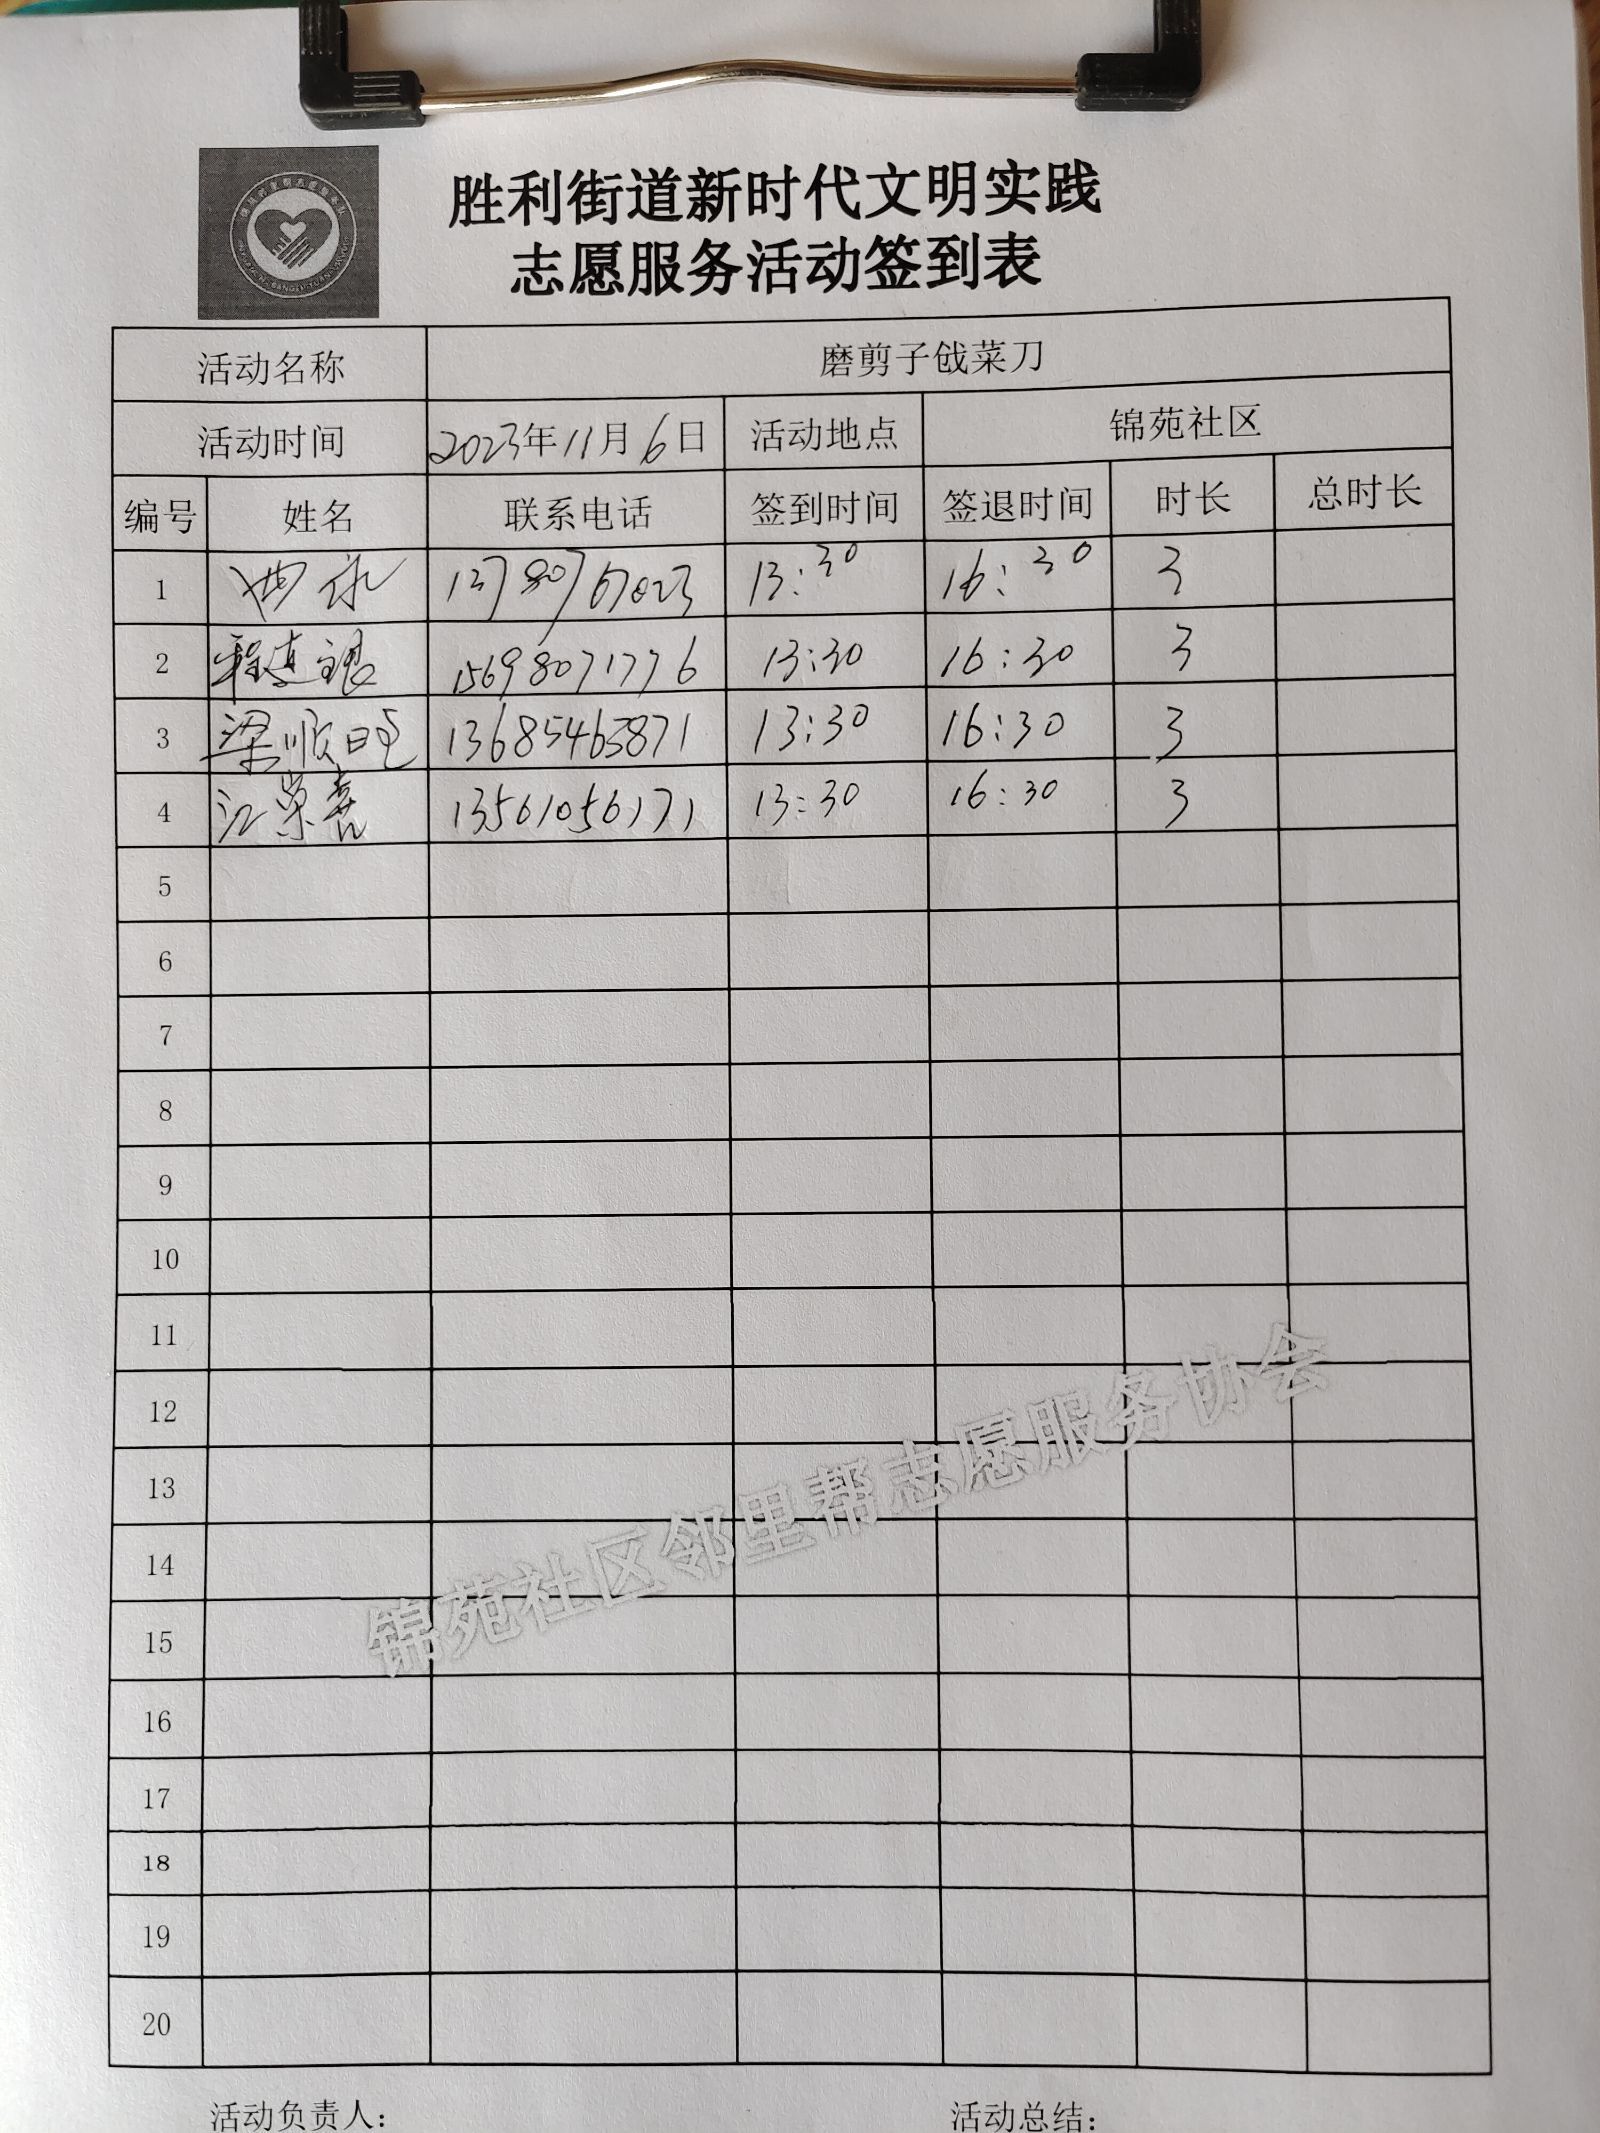 胜利街道新时代文明实践
志愿服务活动签到表
活动名称 磨剪子戗菜刀
活动时间 2023年11月6日 活动地点 锦苑社区
编号 姓名 联系电话 签到时间 签退时间 时长 总时长
1 13780767023 13:30 16:30 3
2 15698071776 13:30 16:30 3
3 梁顺旺 13685463871 13:30 16:30 3
4 江荣喜 13561056171 13:30 16:30 3
5
6
7
8
9
10
11
12
13
14
15
16
17
18
19
20
锦苑社区邻里帮志愿服务协会
活动负责人： 活动总结：